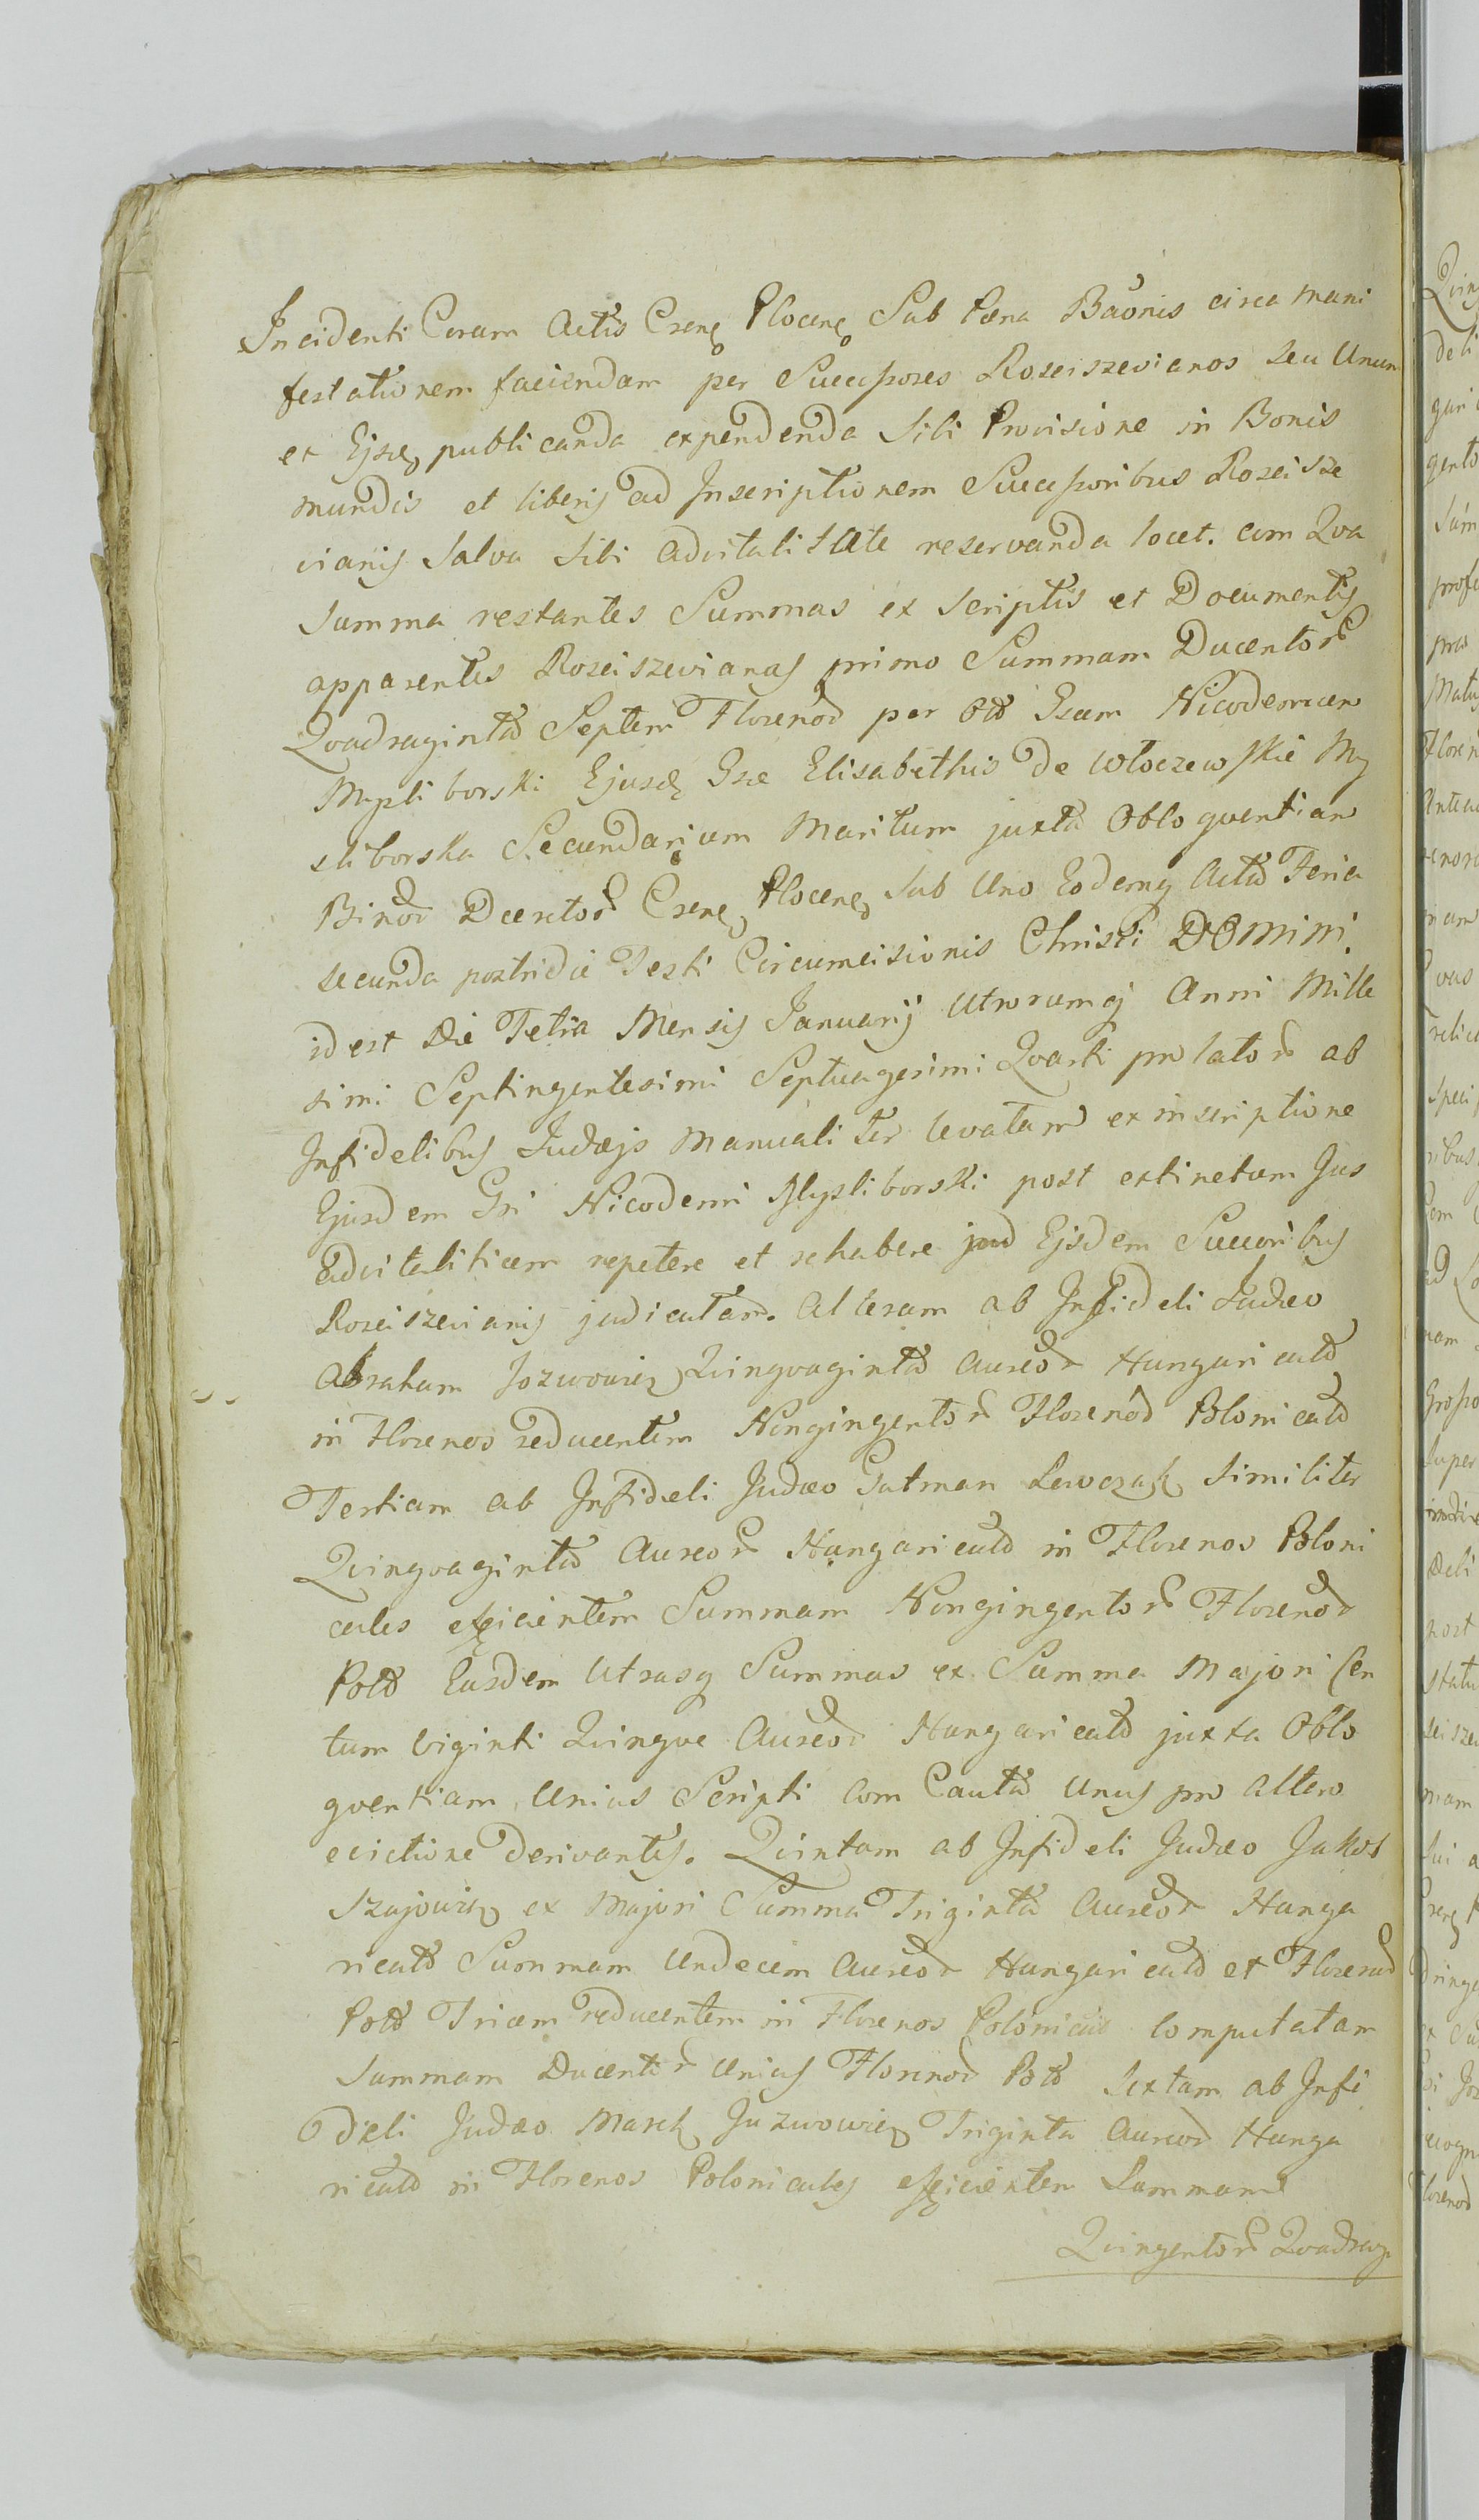 Incidenti Coram Actis Crens Plocens Sub Pœna Bãonis circa Mani
festationem faciendam per Successores Rosciszevianos seu Unum
ex Ejsd publicanda expendenda Sibi Provisione in Bonis
mundis et liberis ad Inscriptionem Successoribus Roscisze
vianis Salva Sibi Advitalitate reservanda locet. cum Qva
Summa restantes Summas ex Scriptis et Documentis
apparentes Rosciszevianas primo Summam Ducentor
Qvadraginta Septem Floreno͠r per Olim Gsum Nicodemum
Mysliborski Ejusd Gsæ Elisabethis de Włoczewskie My
sliborska Secundarium Maritum juxta Obloqventiam
Bino͠r Decretor Crens Plocens sub Uno Eodemq Actu Feria
secunda postridie Festi Circumcisionis Christi DOMINI
idest Die Tertia Mensis Januarij Utrorumq Anni Mille
simi Septingentesimi Septuagesimi Qvarti prolator ab
Infidelibus Judæis Manualiter levatam ex inscriptione
Ejusdem Gsi Nicodemi Mysliborski post extinctum Jus
advitaliticum repetere et rehabere jad Ejsdem Successoribus
Rosciszevianis judicatam. Alteram ab Infideli Judæo
Abraham Jozwowicz Qvinqvaginta Aureo͠r Hungaricaliu͠
in Florenos reducentem Nongingentor Floreno͠r Polonicaliu͠
Tertiam ab Infideli Judæo Gutman Lewczak similiter
Qvinqvaginta Aureor Hungaricaliu͠ in Florenos Poloni
cales efficientem Summam Nongingentor Floreno͠r
Polliu͠ Easdem Utrasq Summas ex Summa Majori Cen
tum viginti Qvinqve Aureo͠r Hungaricaliu͠ juxta Oblo
qventiam Unius Scripti Com Cauta Unus pro altero
evictione derivantes. Qvintam ab Infideli Judæo Jakob
Szajowicz ex Majori Summa Triginta Aureo͠r Hunga
ricaliu͠ Summam Undecim Aureo͠r Hungaricaliu͠ et Floreno͠r
Polliu͠ Trium reducentem in Florenos Polonicales Computatam
Summam Ducentor Unius Floreno͠r Polliu͠ Sextam ab Infi
deli Judæo Marek Juzwowicz Triginta Aureo͠r Hunga
ricaliu͠ in Florenos Polonicales efficientem Summam
Qvingentor Qvadrag